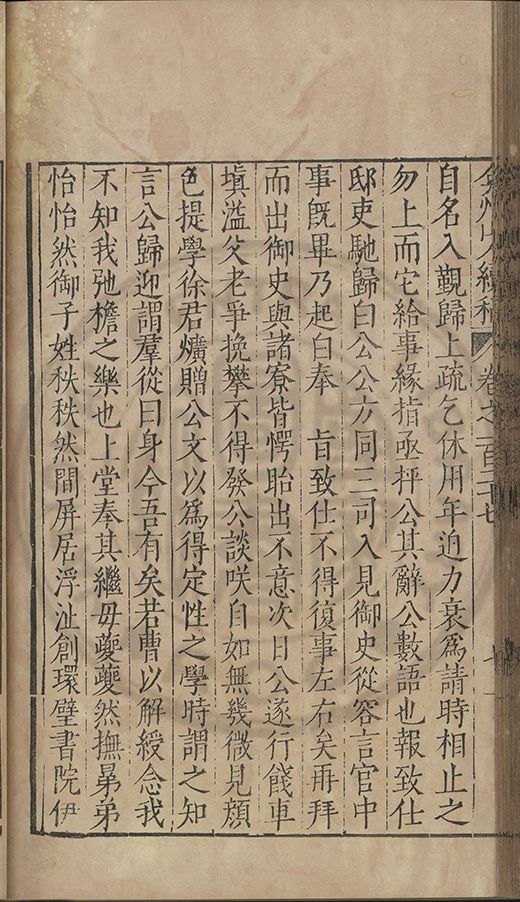 弇州山人續稿 卷之一百二十七
自名入覲歸上疏乞休用年迫力衰爲請時相止之
勿上而它給事緣指亟抨公其辭公數語也報致仕
邸吏馳歸白公公方同三司入見御史從容言官中
事旣畢乃起白奉 旨致仕不得復事左右矣再拜
而出御史與諸寮皆愕眙出不意次日公遂行餞車
塡溢父老爭挽攀不得發公談咲自如無幾微見顏
色提學徐君爌贈公文以爲得定性之學時謂之知
言公歸迎謂羣從曰身今吾有矣若曹以解綬念我
不知我弛檐之樂也上堂奉其繼母夔夔然撫晜弟
怡怡然御子姓秩秩然間屏居浮沚創環璧書院伊